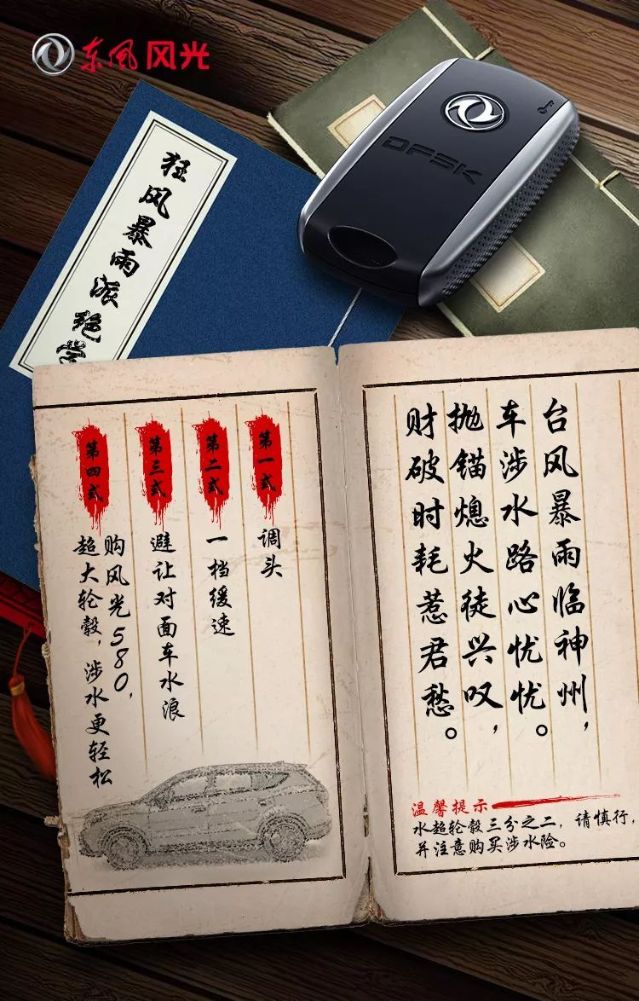 东风风光
DFSK
狂风暴雨派绝学
台风暴雨临神州，
车涉水路心忧忧。
抛锚熄火徒兴叹，
财破时耗惹君愁。
温馨提示
水超轮毂三分之二，请慎行，
并注意购买涉水险。
第一式
调头
第二式
一档缓速
第三式
避让对面车水浪
第四式
购风光580，
超大轮毂，涉水更轻松